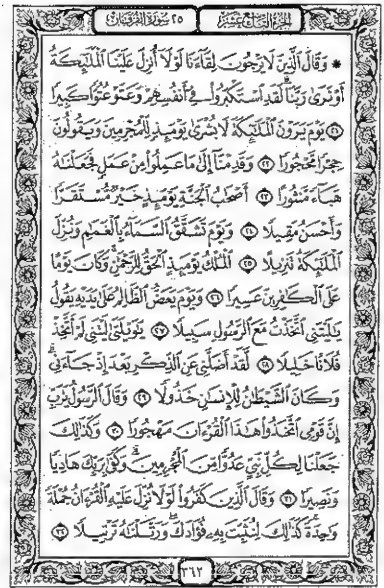 الجزء التاسع عشر ٢٥ سورة الفرقان
۞ وَقَالَ ٱلَّذِينَ لَا يَرْجُونَ لِقَآءَنَا لَوْلَآ أُنزِلَ عَلَيْنَا ٱلْمَلَٰٓئِكَةُ
أَوْ نَرَىٰ رَبَّنَا ۗ لَقَدِ ٱسْتَكْبَرُوا۟ فِىٓ أَنفُسِهِمْ وَعَتَوْ عُتُوًّا كَبِيرًا
٢١ يَوْمَ يَرَوْنَ ٱلْمَلَٰٓئِكَةَ لَا بُشْرَىٰ يَوْمَئِذٍ لِّلْمُجْرِمِينَ وَيَقُولُونَ
حِجْرًا مَّحْجُورًا ٢٢ وَقَدِمْنَآ إِلَىٰ مَا عَمِلُوا۟ مِنْ عَمَلٍ فَجَعَلْنَٰهُ
هَبَآءً مَّنثُورًا ٢٣ أَصْحَٰبُ ٱلْجَنَّةِ يَوْمَئِذٍ خَيْرٌ مُّسْتَقَرًّا
وَأَحْسَنُ مَقِيلًا ٢٤ وَيَوْمَ تَشَقَّقُ ٱلسَّمَآءُ بِٱلْغَمَٰمِ وَنُزِّلَ
ٱلْمَلَٰٓئِكَةُ تَنزِيلًا ٢٥ ٱلْمُلْكُ يَوْمَئِذٍ ٱلْحَقُّ لِلرَّحْمَٰنِ ۚ وَكَانَ يَوْمًا
عَلَى ٱلْكَٰفِرِينَ عَسِيرًا ٢٦ وَيَوْمَ يَعَضُّ ٱلظَّالِمُ عَلَىٰ يَدَيْهِ يَقُولُ
يَٰلَيْتَنِى ٱتَّخَذْتُ مَعَ ٱلرَّسُولِ سَبِيلًا ٢٧ يَٰوَيْلَتَىٰ لَيْتَنِى لَمْ أَتَّخِذْ
فُلَانًا خَلِيلًا ٢٨ لَّقَدْ أَضَلَّنِى عَنِ ٱلذِّكْرِ بَعْدَ إِذْ جَآءَنِى ۗ
وَكَانَ ٱلشَّيْطَٰنُ لِلْإِنسَٰنِ خَذُولًا ٢٩ وَقَالَ ٱلرَّسُولُ يَٰرَبِّ
إِنَّ قَوْمِى ٱتَّخَذُوا۟ هَٰذَا ٱلْقُرْءَانَ مَهْجُورًا ٣٠ وَكَذَٰلِكَ
جَعَلْنَا لِكُلِّ نَبِىٍّ عَدُوًّا مِّنَ ٱلْمُجْرِمِينَ ۗ وَكَفَىٰ بِرَبِّكَ هَادِيًا
وَنَصِيرًا ٣١ وَقَالَ ٱلَّذِينَ كَفَرُوا۟ لَوْلَا نُزِّلَ عَلَيْهِ ٱلْقُرْءَانُ جُمْلَةً
وَٰحِدَةً ۚ كَذَٰلِكَ لِنُثَبِّتَ بِهِۦ فُؤَادَكَ ۖ وَرَتَّلْنَٰهُ تَرْتِيلًا ٣٢
٣٦٢